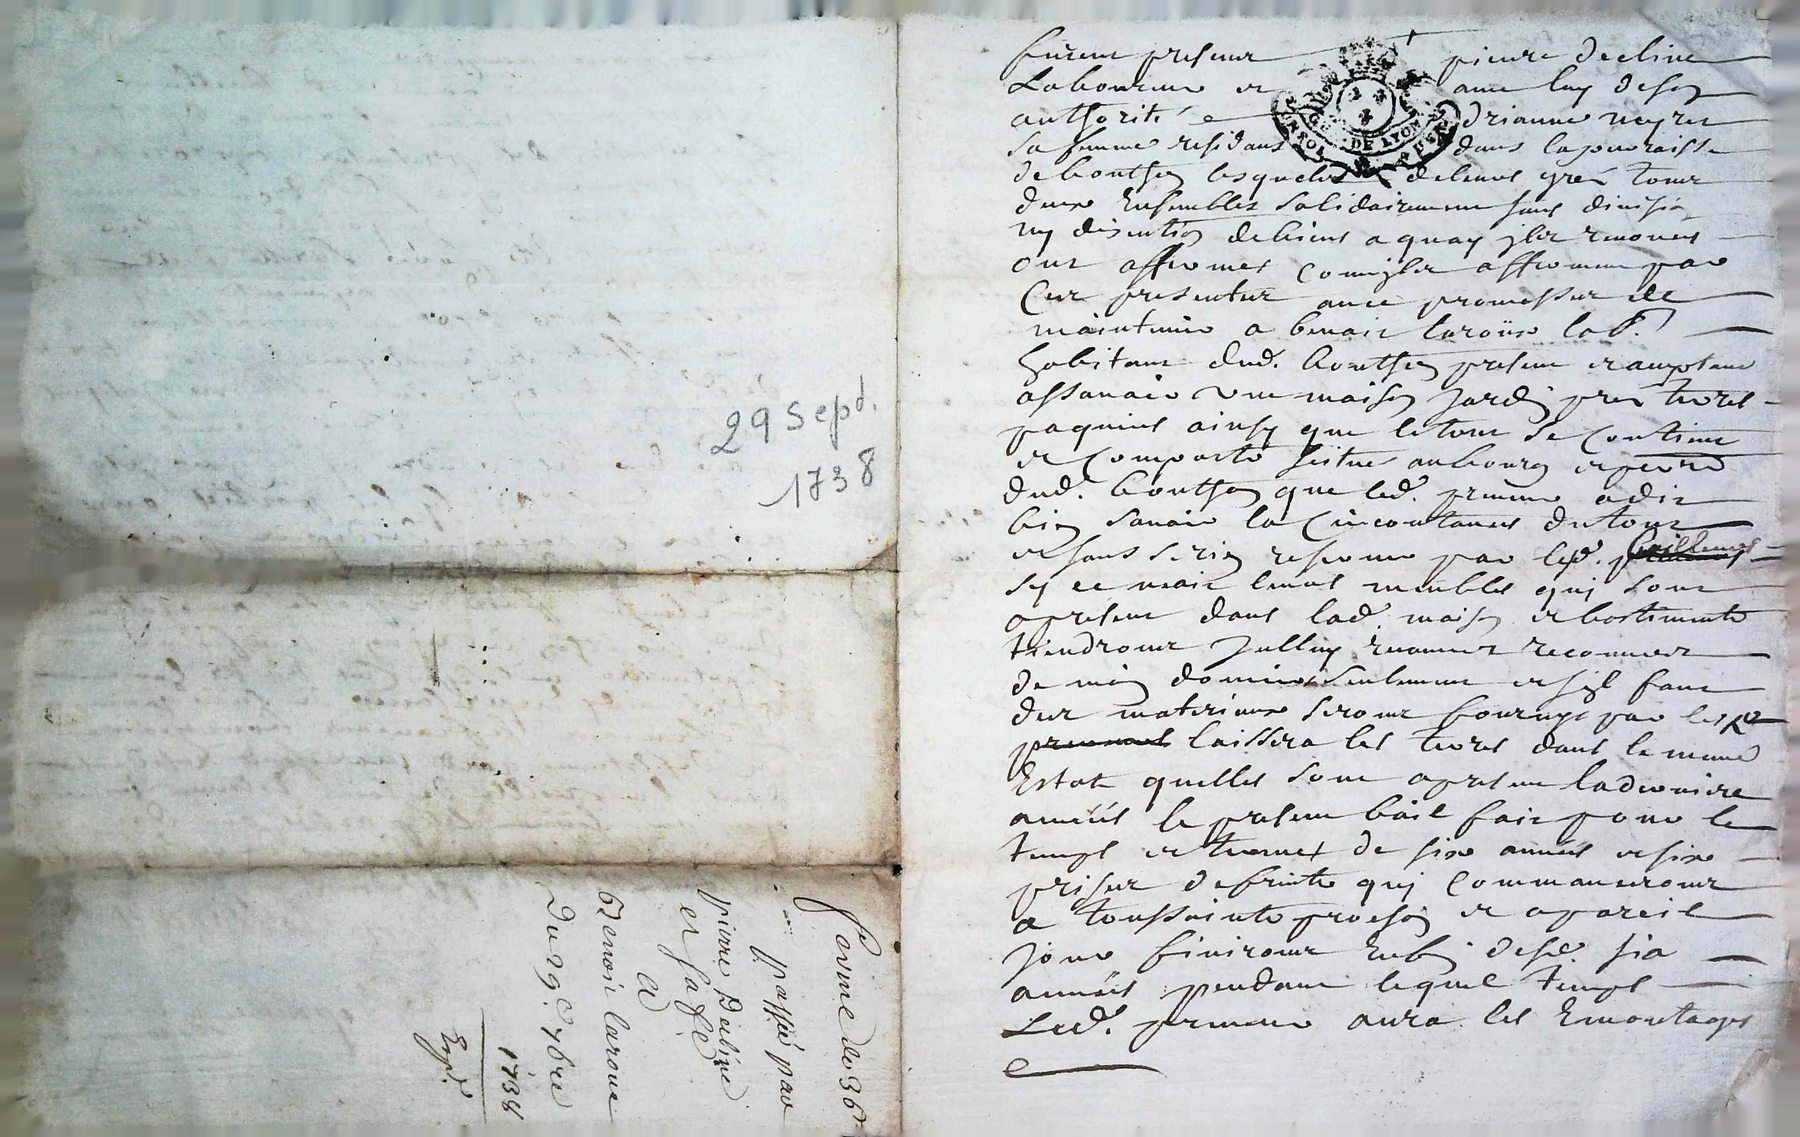 29 Sepd.
1738
ferme de 36
passée par
pierre Decline
et sa fe
A
Benoit laroue
Du 29.e 7bre
1738
Expd.
furent present pierre decline
Laboureur et avec luy de son
authorité drianne neyret
sa femme residans dans la parroisse
de bouthon lesquels de leurs grés tous
deux Ensembles solidairement sans division
ny discution de biens a quoy ils renonces
ont affermes comme ils afferment par
Ces presentes avec promesses de
maintenir a benoit laroüe lab.r
habitant dud. bouthon present et acceptant
assavoir une maison Jardin prés terres
paquiers ainsy que le tout se Contient
et Comporte scitué au bourg et
dud. bouthon que led. preneur a dit
bien savoir la Circonstances du tout
et sans se rien reserver par led.
leurs meubles qui sont
apresent dans lad. maison et bastiments
tiendront
de main seulement et sil faut
des materiaux seront fournys par les
laissera les terres dans le meme
Estat quelles sont apresent la derniere
année le present bail fait pour le
temps et termes de six années et six
prises de fruits qui Commanceront
a toussaints prochain et a pareil
Jour finiront Enfin desd. six
années pendant lequel temps
Led. preneur aura les Emoutages